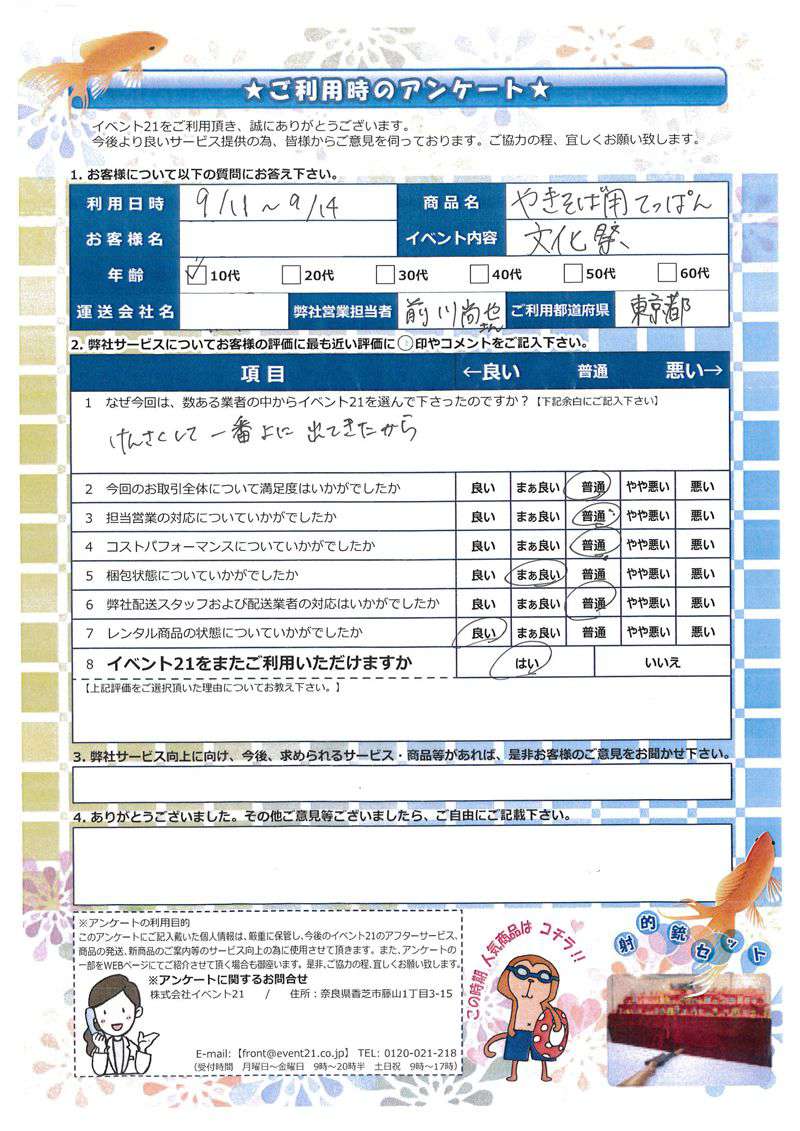 ★ご利用時のアンケート★
イベント21をご利用頂き、誠にありがとうございます。
今後より良いサービス提供の為、皆様からご意見を伺っております。ご協力の程、宜しくお願い致します。
1. お客様について以下の質問にお答え下さい。
利用日時 9/11～9/14 商品名 やきそば用てっぱん
お客様名 イベント内容 文化祭、
年齢 10代 20代 30代 40代 50代 60代
運送会社名 弊社営業担当者 前川尚也さん ご利用都道府県 東京都
2. 弊社サービスについてお客様の評価に最も近い評価に○印やコメントをご記入下さい。
項目 ←良い 普通 悪い→
1 なぜ今回は、数ある業者の中からイベント21を選んで下さったのですか？【下記余白にご記入下さい】
けんさくして一番上に出てきたから
2 今回のお取引全体について満足度はいかがでしたか 良い まぁ良い 普通 やや悪い 悪い
3 担当営業の対応についていかがでしたか 良い まぁ良い 普通 やや悪い 悪い
4 コストパフォーマンスについていかがでしたか 良い まぁ良い 普通 やや悪い 悪い
5 梱包状態についていかがでしたか 良い まぁ良い 普通 やや悪い 悪い
6 弊社配送スタッフおよび配送業者の対応はいかがでしたか 良い まぁ良い 普通 やや悪い 悪い
7 レンタル商品の状態についていかがでしたか 良い まぁ良い 普通 やや悪い 悪い
8 イベント21をまたご利用いただけますか はい いいえ
【上記評価をご選択頂いた理由についてお教え下さい。】
3. 弊社サービス向上に向け、今後、求められるサービス・商品等があれば、是非お客様のご意見をお聞かせ下さい。
4. ありがとうございました。その他ご意見等ございましたら、ご自由にご記載下さい。
※アンケートの利用目的
このアンケートにご記入戴いた個人情報は、厳重に保管し、今後のイベント21のアフターサービス、
商品の発送、新商品のご案内等のサービス向上の為に使用させて頂きます。また、アンケートの
一部をWEBページにてご紹介させて頂く場合も御座います。是非、ご協力の程、宜しくお願い致します。
※アンケートに関するお問合せ
株式会社イベント21 / 住所：奈良県香芝市藤山1丁目3-15
E-mail:【front@event21.co.jp】 TEL: 0120-021-218
（受付時間 月曜日～金曜日 9時～20時半 土日祝 9時～17時）
この時期 人気商品は コチラ!!
射的銃セット